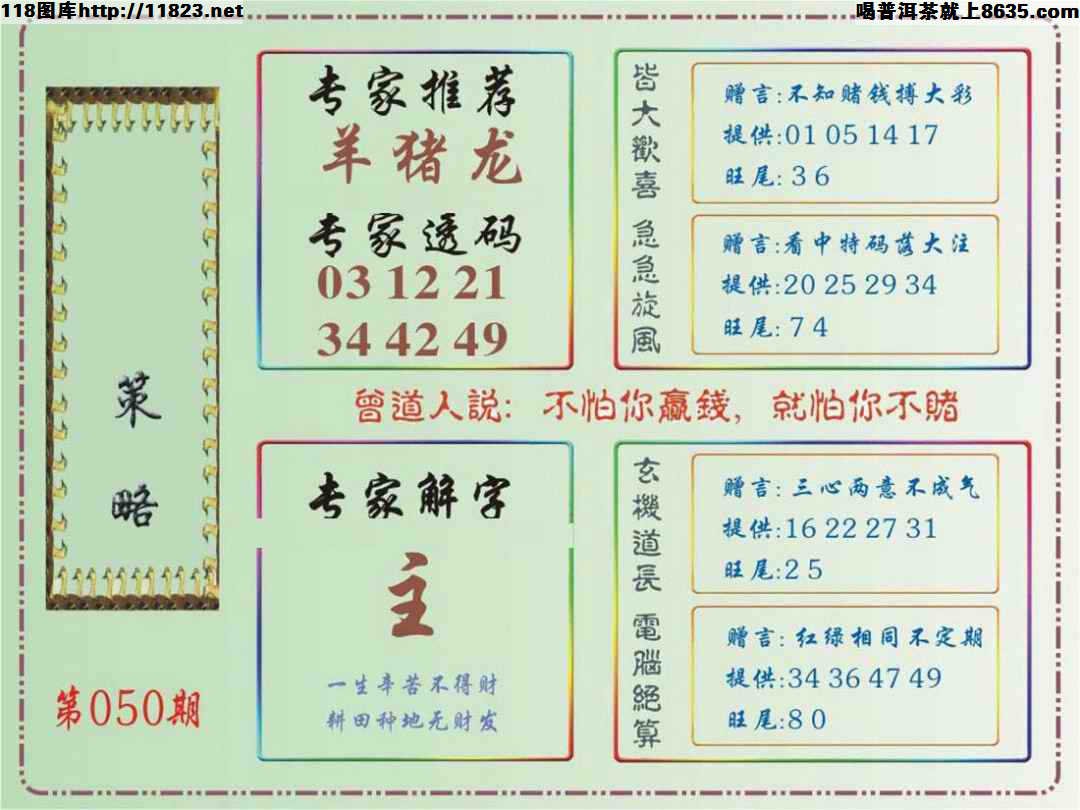 118图库http://11823.net
喝普洱茶就上8635.com
策略
第050期
专家推荐
羊猪龙
专家透码
03 12 21
34 42 49
皆大歡喜
赠言:不知赌钱搏大彩
提供:01 05 14 17
旺尾:3 6
急急旋風
赠言:看中特码落大注
提供:20 25 29 34
旺尾:7 4
曾道人説: 不怕你赢錢, 就怕你不賭
专家解字
主
一生辛苦不得财
耕田种地无财发
玄機道長
赠言:三心两意不成气
提供:16 22 27 31
旺尾:2 5
電腦絕算
赠言:红绿相同不定期
提供:34 36 47 49
旺尾:8 0